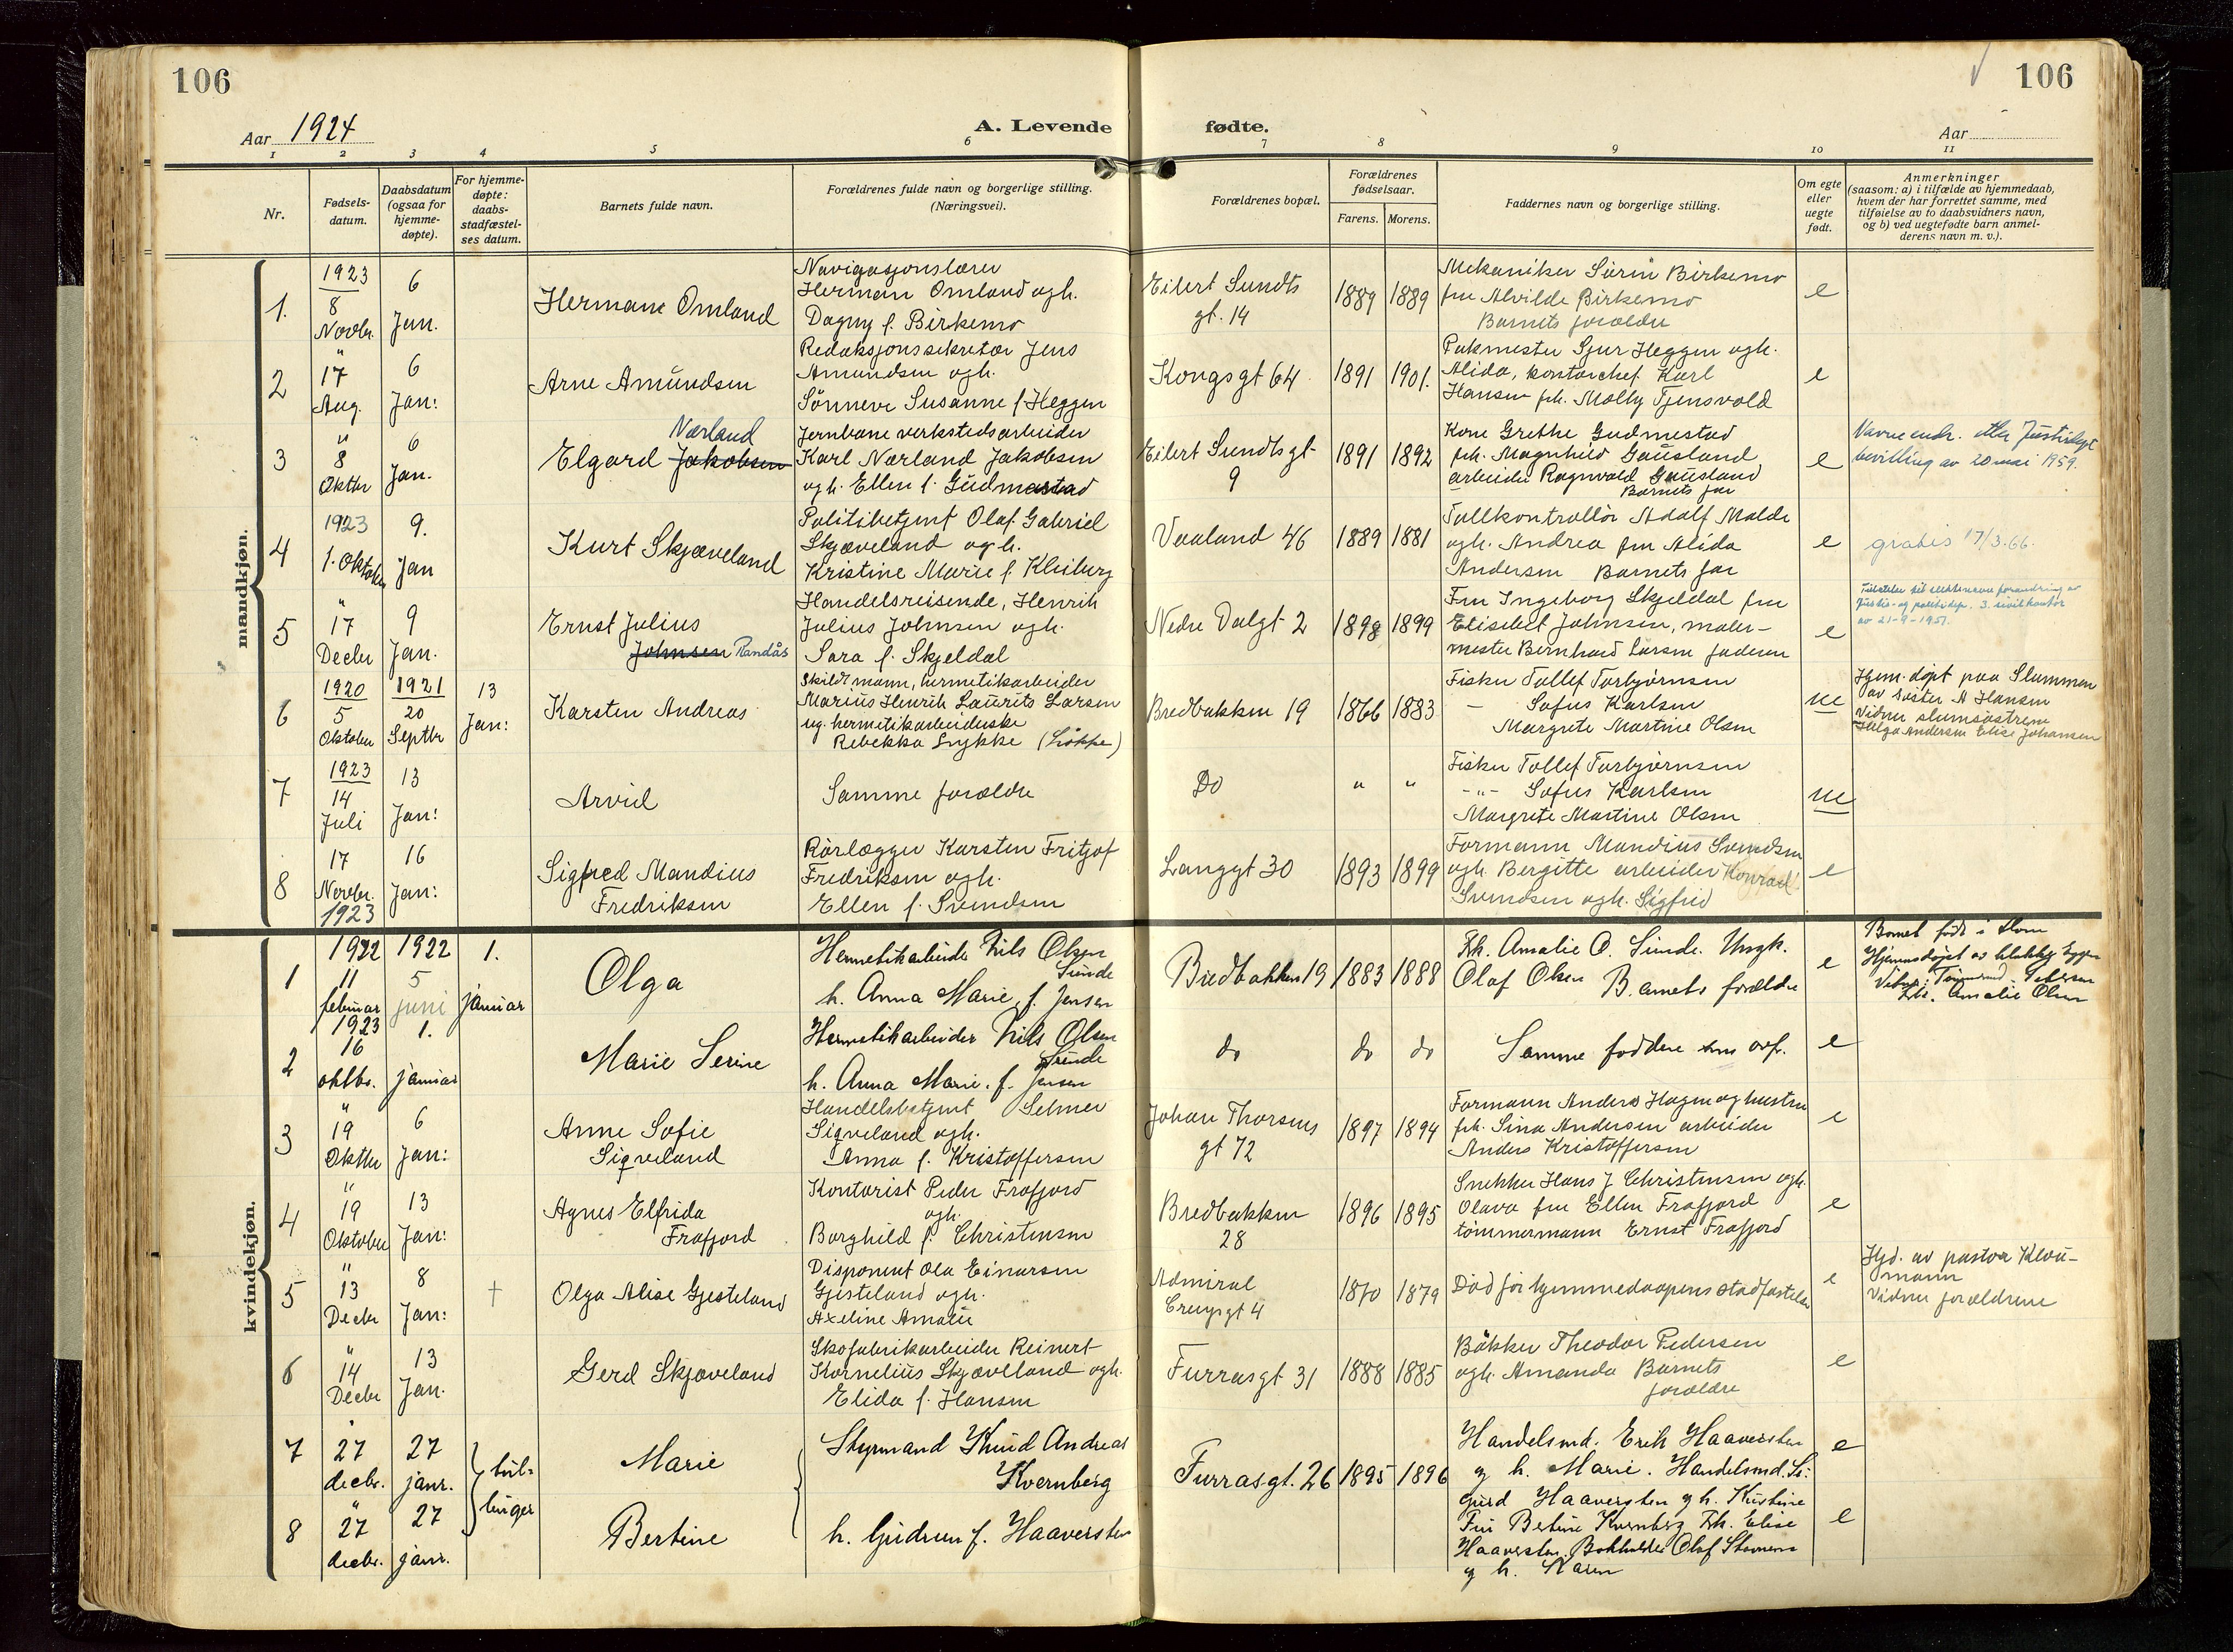 106
106
Aar 1924
A. Levende
fødte.
Aar
1
2
3
4
5
6
7
8
9
10
11
Nr.
Fødsels-
datum.
Daabsdatum
(ogsaa for
hjemme-
døpte).
For hjemme-
døpte:
daabs-
stadfæstel-
ses datum.
Barnets fulde navn.
Forældrenes fulde navn og borgerlige stilling.
(Næringsvei).
Forældrenes bopæl.
Forældrenes
fødselsaar.
Farens.
Morens.
Faddernes navn og borgerlige stilling.
Om egte
eller
uegte
født.
Anmerkninger
(saasom: a) i tilfælde av hjemmedaab,
hvem der har forrettet samme, med
tilføielse av to daabsvidners navn,
og b) ved uegtefødte barn anmel-
derens navn m. v.).
mandkjøn.
1.
1923
8
Novbr.
6
Jan.
Hermann Omland
Navigasjonslærer
Herman Omland ogh.
Dagny f. Birkemo
Eilert Sundts
gt. 14
1889
1889
Mekaniker Sørin Birkemo
fru Alvilde Birkemo
Barnets forældre
e
2
"
17
Aug.
6
Jan:
Arne Amundsen
Redaksjonssekretær Jens
Amundsen ogh.
Sønneve Susanne f. Heggen
Kongsgt 64
1891
1901.
Pakmester Sjur Heggen ogh.
Alida, kontorchef Karl
Hansen frk. Molly Tjensvold
e
3
"
8
Oktbr
6
Jan.
Nærland
Elgard Jakobsen
Jernbane verkstedsarbeider
Karl Nærland Jakobsen
ogh. Ellen f. Gudmestad
Eilert Sundts gt
9
1891
1892
Kone Grethe Gudmestad
frk. Magnhild Gausland
arbeider Ragnvald Gausland
Barnets far
e
Navneendr. etter Justisdept
bevilling av 20 mai 1959.
4
1923
1. Oktober
9.
Jan
Kurt Skjæveland
Politibetjent Olaf Gabriel
Skjæveland ogh.
Kristine Marie f. Kleiberg
Vaaland 46
1889
1881
Tollkontrollør Adolf Malde
ogh. Andrea fru Alida
Andersen Barnets far
e
gratis 17/3.66.
5
"
17
Decbr
9
Jan.
Ernst Julius
Johnsen Randås
Handelsreisende, Henrik
Julius Johnsen ogh.
Sara f. Skjeldal
Nedre Dalgt 2
1898
1899
Fru Ingeborg Skjeldal fru
Elisabet Johnsen, maler-
mester Bernhard Larsen faderen
e
Tillatelse til slektsnavns forandring av
Justis- og politidep. 3. sivilkontor
av 21-9-1951.
6
1920
5
Oktober
1921
20
Septbr
13
Jan:
Karsten Andreas
Skildt mann, hermetikarbeider
Marius Henrik Laurits Larsen
ug. hermetikarbeiderske
Rebekka Lykke (Løkke)
Bredbakken 19
1866
1883
Fisker Tollef Torbjørnsen
- Sofus Karlsen
Margrete Martine Olsen
ue
Hjem. døpt paa Slummen
av søster A Hansen
Vidner slumsøstrene
Helga Andersen Elise Johansen
7
1923
14
Juli
13
Jan:
Arvid
Samme forældre
Do
"
"
Fisker Tollef Torbjørnsen
-"- Sofus Karlsen
Margrete Martine Olsen
ue
8
17
Novbr.
1923
16
Jan:
Sigfred Mandius
Fredriksen
Rørlægger Karsten Fritjof
Fredriksen ogh.
Ellen f. Svendsen
Langgt 30
1893
1899
Formann Mandius Svendsen
ogh. Bergitte arbeider Konrad
Svendsen ogh. Sigfrid
e
kvindekjøn.
1
1922
11
februar
1922
5
juni
1.
januar
Olga
Hermetikarbeider Nils Olsen
Sunde
h. Anna Marie, f. Jensen
Bredbakken 19
1883
1888
Frk. Amalie O. Sunde. Ungk.
Olaf Olsen Barnets forældre
e
Barnet født i
Hjemmedøpt av klokker
Vitner:
Frk. Amalie Olsen
2
1923
16
oktbr.
1.
januar
Marie Serine
Hermetikarbeider Nils Olsen
Sunde
h. Anna Marie. f. Jensen
do
do
do
Samme faddere som ovf.
e
3
"
19
Oktbr
6
Jan:
Anne Sofie
Sigveland
Handelsbetjent Selmer
Sigveland ogh.
Anna f. Kristoffersen
Johan Thorsens
gt 72
1897
1894
Formann Anders Hagen og hustru
frk. Sina Andersen arbeider
Anders Kristoffersen
e
4
"
19
Oktober
13
Jan:
Agnes Elfrida
Frafjord
Kontorist Peder Frafjord
ogh.
Borghild f. Christensen
Bredbakken
28
1896
1895
Snekker Hans J Christensen ogh.
Olava fru Ellen Frafjord
tømmermann Ernst Frafjord
e
5
"
13
Decbr
8
Jan:
†
Olga Alise Gjesteland
Disponent Ola Einarsen
Gjesteland ogh.
Axeline Amalie
Admiral
Cruysgt 4
1870
1879
Død før hjemmedaapens stadfæstelse
e
Hjd. av pastor Klou-
mann
Vidner forældrene
6
"
14
Decbr
13
Jan.
Gerd Skjæveland
Skofabrikarbeider Reinert
Kornelius Skjæveland ogh.
Elida f. Hansen
Furrasgt 31
1888
1885
Bøkker Theodor Pedersen
ogh. Amanda Barnets
forældre
e
7
"
27
decbr.
27
janr.
tvil-
linger
Marie
Styrmand Knud Andreas
Kvernberg
h. Gudrun f. Haaversten
Furrasgt. 26
1895
1896
Handelsmd. Erik Haaversten
og h. Marie. Handelsmd. Si-
gurd Haaversten og h. Kristine
Fru Bertine Kvernberg Frk. Elise
Haaversten. Bokholder Olaf
og h. Karen
e
8
"
27
decbr.
27
janr.
Bertine
e